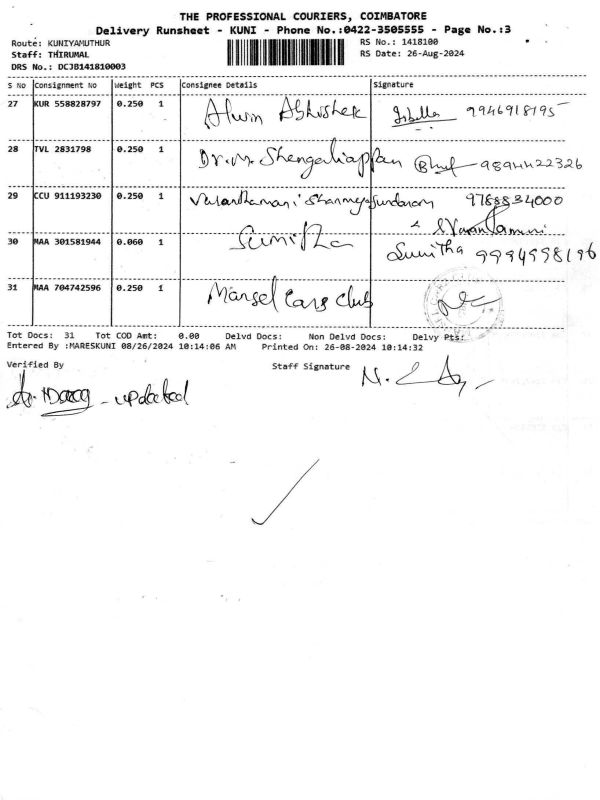 THE PROFESSIONAL COURIERS, COIMBATORE
Delivery Runsheet - KUNI - Phone No.:0422-3505555 - Page No.:3
Route: KUNIYAMUTHUR RS No.: 1418100
Staff: THIRUMAL RS Date: 26-Aug-2024
DRS No.: DCJB141810003
S No Consignment No Weight PCS Consignee Details Signature
27 KUR 558828797 0.250 1 Alwin Abhishek 9946918195
28 TVL 2831798 0.250 1 Dr. M. 9894422326
29 CCU 911193230 0.250 1 9788834000
30 MAA 301581944 0.060 1 Sunitha Sunitha 9994998196
31 MAA 704742596 0.250 1 Club
Tot Docs: 31 Tot COD Amt: 0.00 Delvd Docs: Non Delvd Docs: Delvy Pts:
Entered By :MARESKUNI 08/26/2024 10:14:06 AM Printed On: 26-08-2024 10:14:32
Verified By Staff Signature
updated